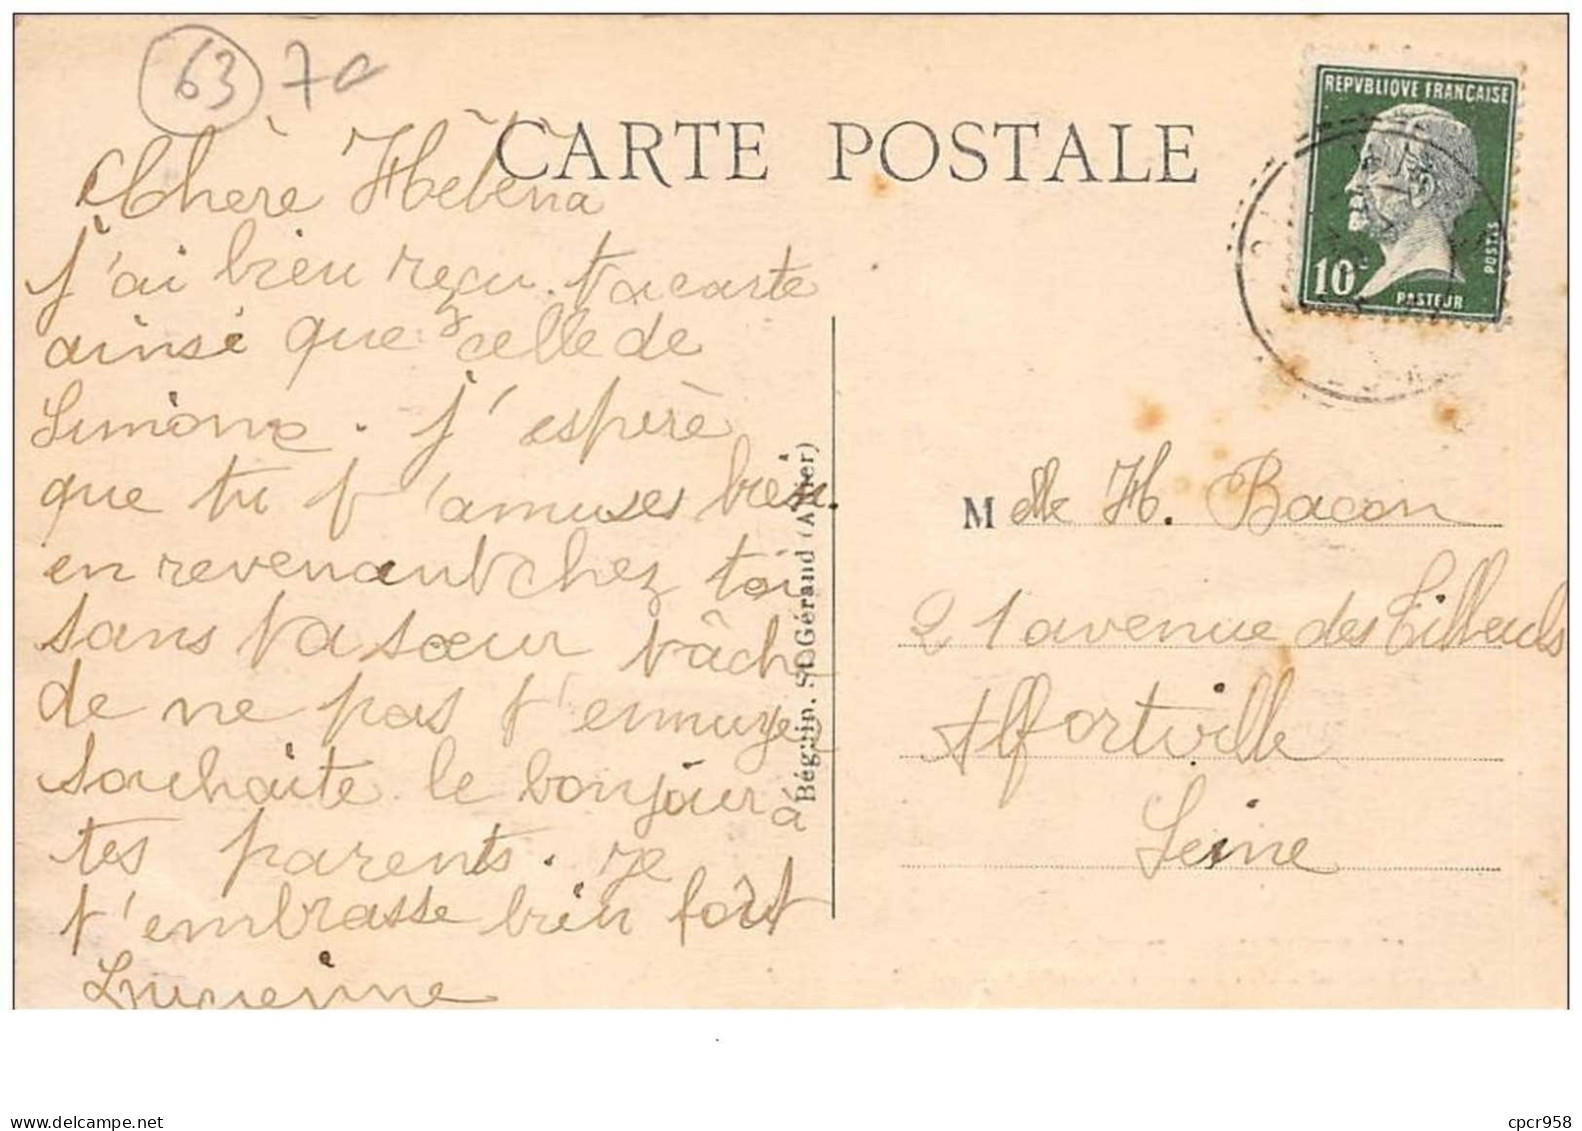 63 70
CARTE POSTALE
REPVBLIQVE FRANÇAISE
10c
POSTES
PASTEUR
Chère Hélèna
j'ai bien reçu ta carte
ainsi que celle de
Simone. j'espère
que tu t'amuses bien.
en revenant chez toi
sans ta sœur tâche
de ne pas t'ennuyer
souhaite le bonjour à
tes parents. je
t'embrasse bien fort
Lucienne
Béguin, St-Gérand (Allier)
Melle H. Bacon
21 avenue des Tilleuls
Alfortville
Seine
delcampe.net
cpcr958